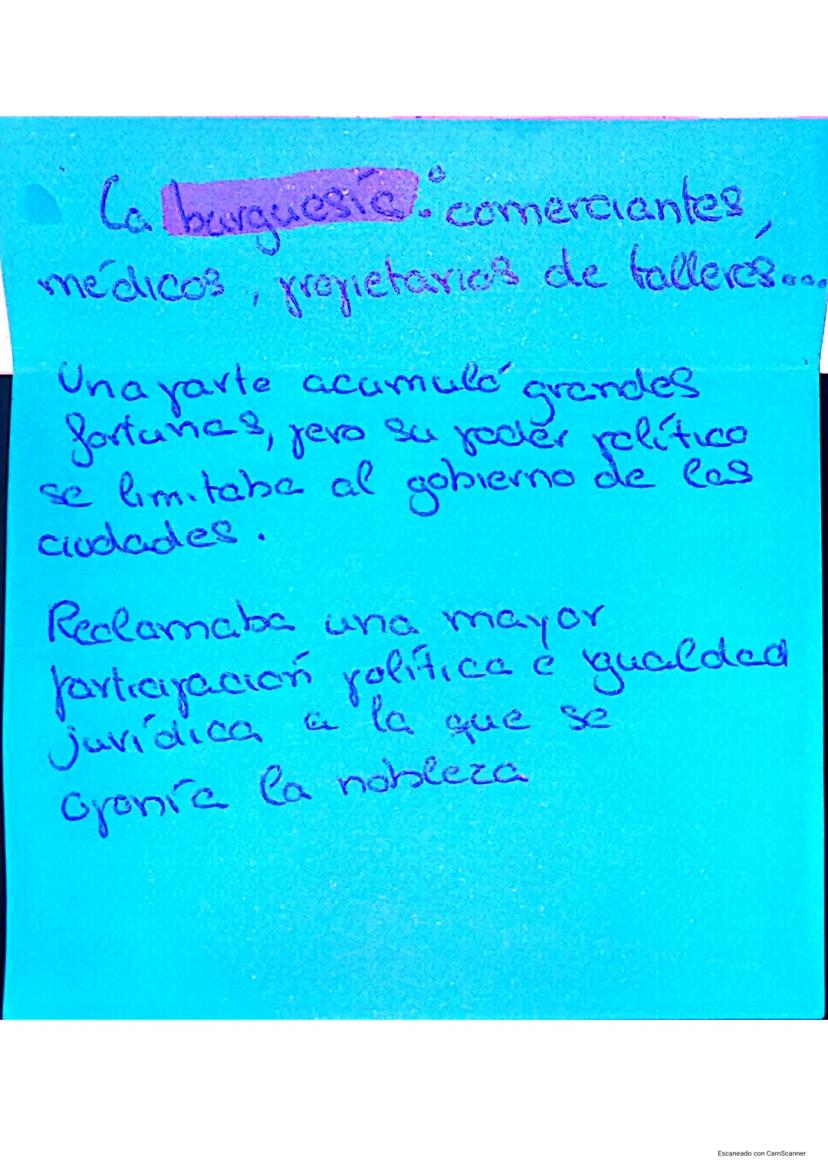 La burguesía: comerciantes,
médicos, propietarios de talleres...
Una parte acumuló grandes
fortunas, pero su poder político
se limitaba al gobierno de las
ciudades.
Reclamaba una mayor
participación política e igualdad
jurídica a la que se
oponía la nobleza
Escaneado con CamScanner